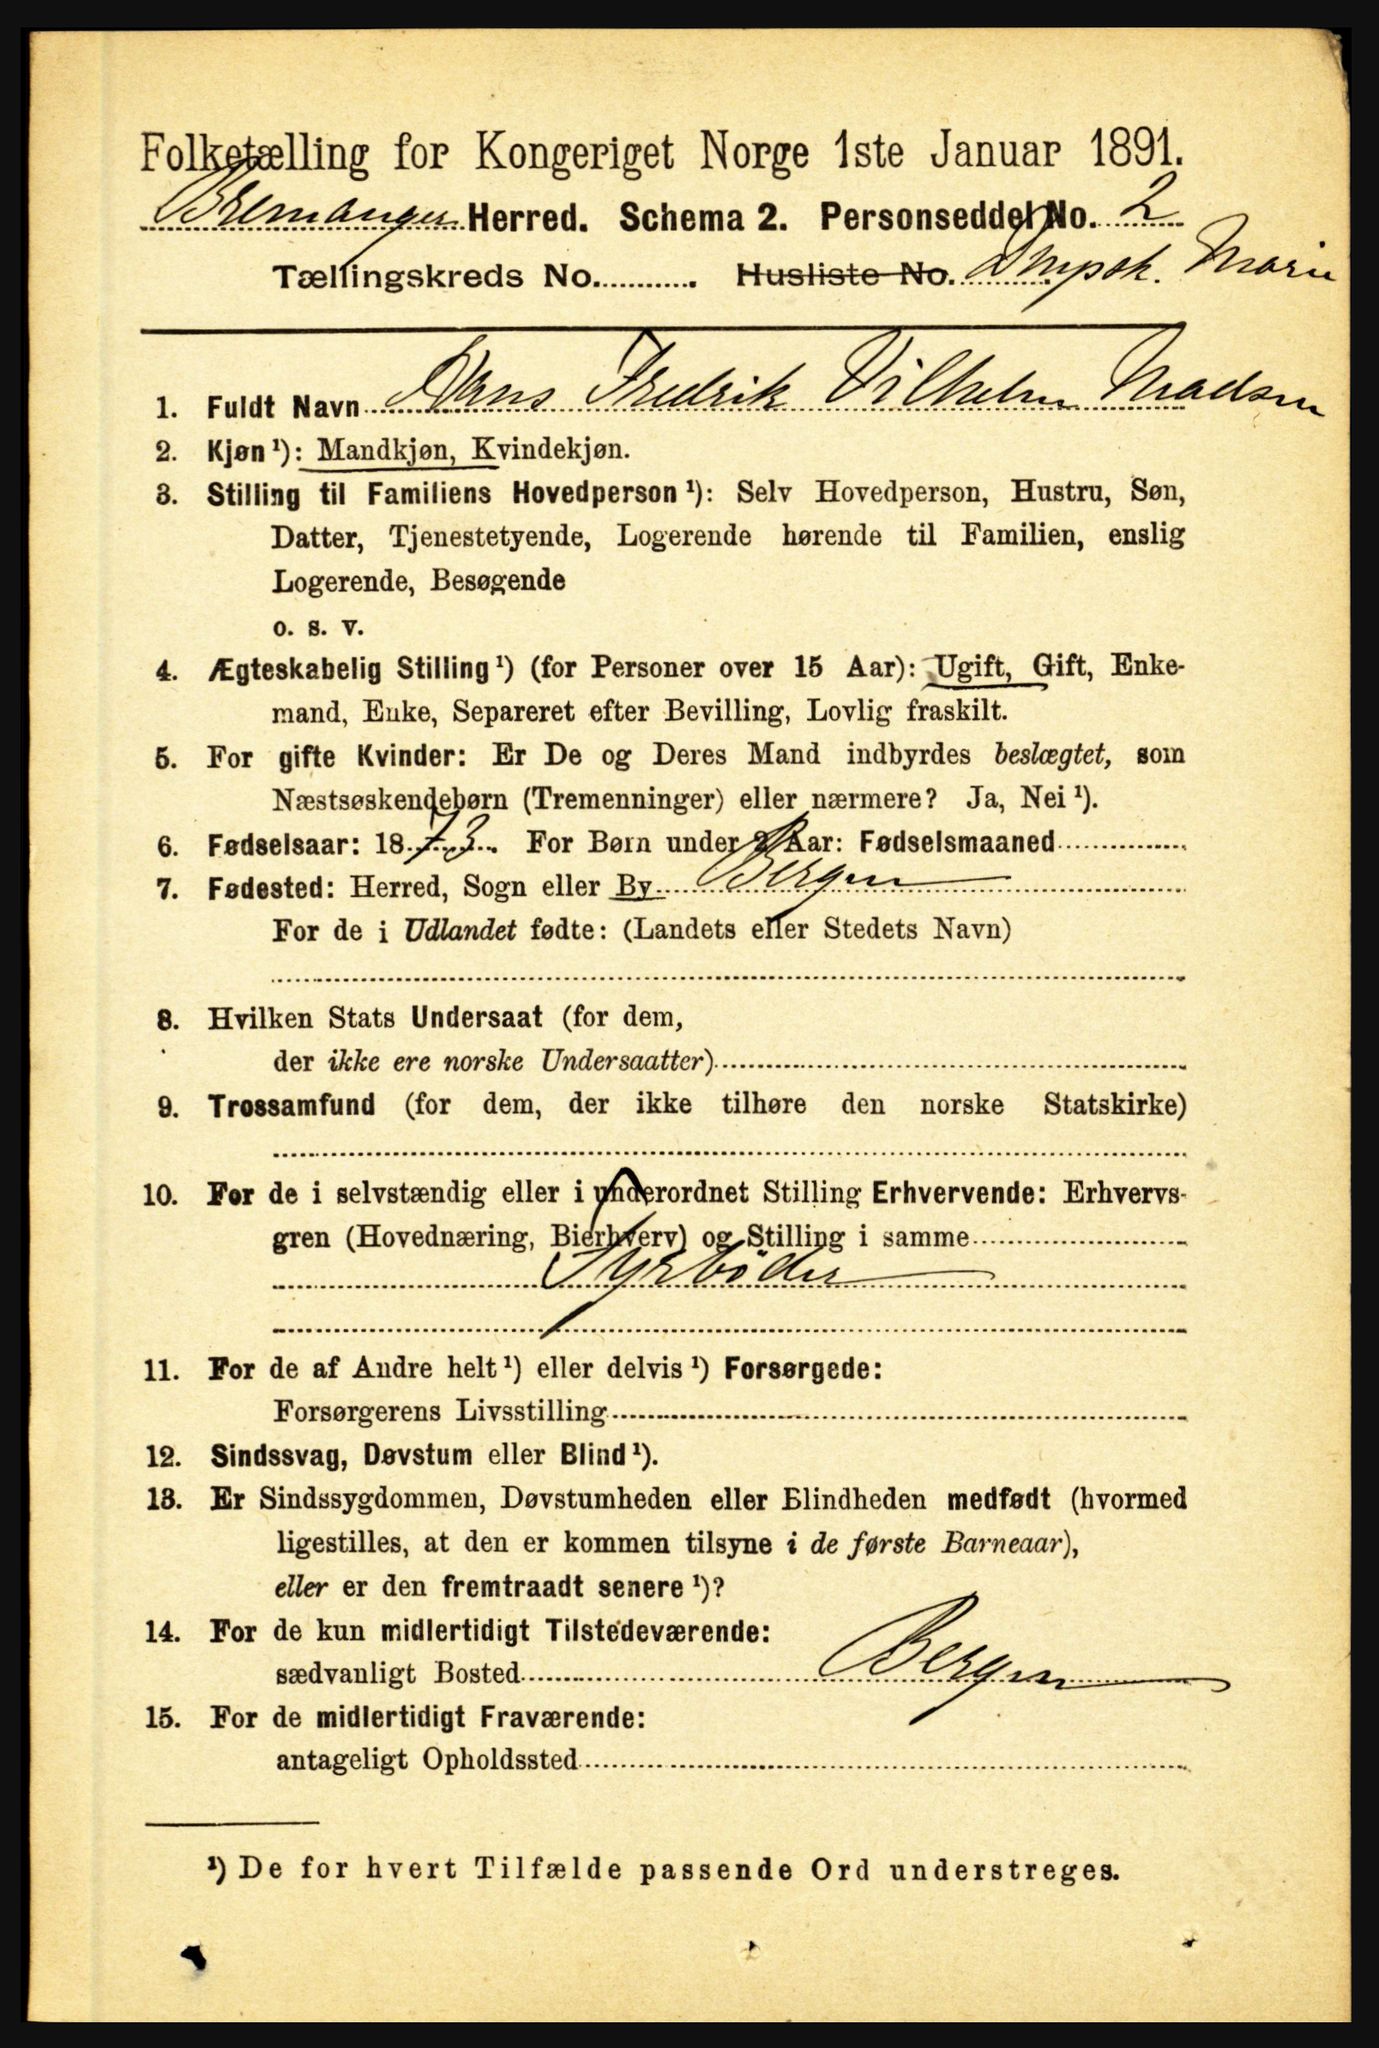 Folketælling for Kongeriget Norge 1ste Januar 1891.
Bremanger Herred. Schema 2. Personseddel No. 2
Tællingskreds No. Husliste No. Dmpsk. Marie
1. Fuldt Navn Hans Fredrik Vilhelm Madsen
2. Kjøn ¹): Mandkjøn, Kvindekjøn.
3. Stilling til Familiens Hovedperson ¹): Selv Hovedperson, Hustru, Søn,
Datter, Tjenestetyende, Logerende hørende til Familien, enslig
Logerende, Besøgende
o. s. v.
4. Ægteskabelig Stilling ¹) (for Personer over 15 Aar): Ugift, Gift, Enke-
mand, Enke, Separeret efter Bevilling, Lovlig fraskilt.
5. For gifte Kvinder: Er De og Deres Mand indbyrdes beslægtet, som
Næstsøskendebørn (Tremenninger) eller nærmere? Ja, Nei ¹).
6. Fødselsaar: 1873. For Børn under 2 Aar: Fødselsmaaned
7. Fødested: Herred, Sogn eller By Bergen
For de i Udlandet fødte: (Landets eller Stedets Navn)
8. Hvilken Stats Undersaat (for dem,
der ikke ere norske Undersaatter)
9. Trossamfund (for dem, der ikke tilhøre den norske Statskirke)
10. For de i selvstændig eller i underordnet Stilling Erhvervende: Erhvervs-
gren (Hovednæring, Bierhverv) og Stilling i samme
Fyrbøder
11. For de af Andre helt ¹) eller delvis ¹) Forsørgede:
Forsørgerens Livsstilling
12. Sindssvag, Døvstum eller Blind ¹).
13. Er Sindssygdommen, Døvstumheden eller Blindheden medfødt (hvormed
ligestilles, at den er kommen tilsyne i de første Barneaar),
eller er den fremtraadt senere ¹)?
14. For de kun midlertidigt Tilstedeværende:
sædvanligt Bosted Bergen
15. For de midlertidigt Fraværende:
antageligt Opholdssted
¹) De for hvert Tilfælde passende Ord understreges.